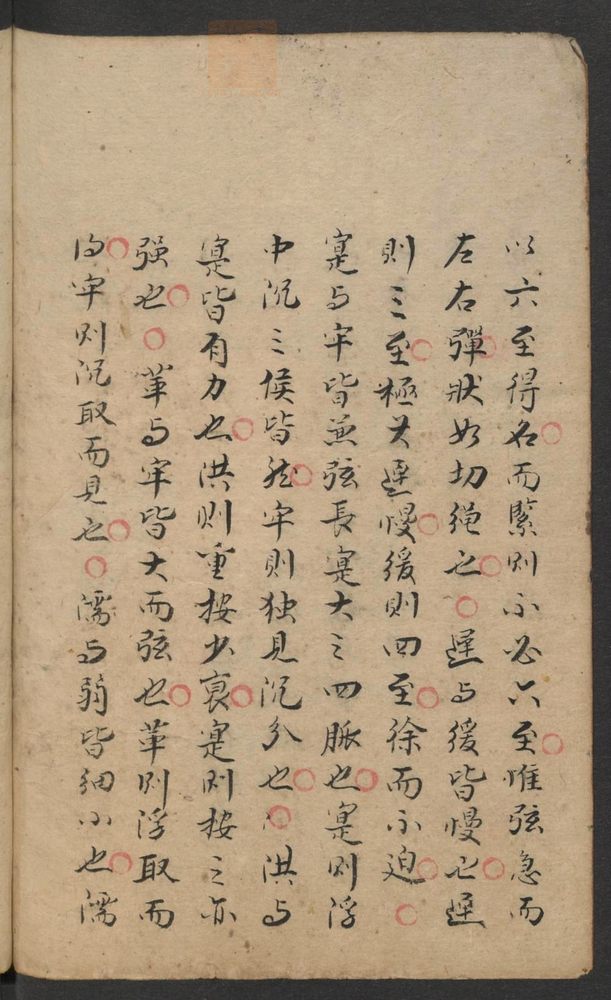 以六至得名而緊則不必六至惟弦急而
左右彈狀如切绳也遲与緩皆慢也遲
則三至極其遲慢緩則四至徐而不迫
寔与牢皆兼弦長寔大之四脈也寔则浮
中沉三候皆然牢則独見沉分也洪与
寔皆有力也洪则重按少衰寔则按之亦
强也革与牢皆大而弦也革则浮取而
得牢则沉取而見也濡与弱皆细小也濡